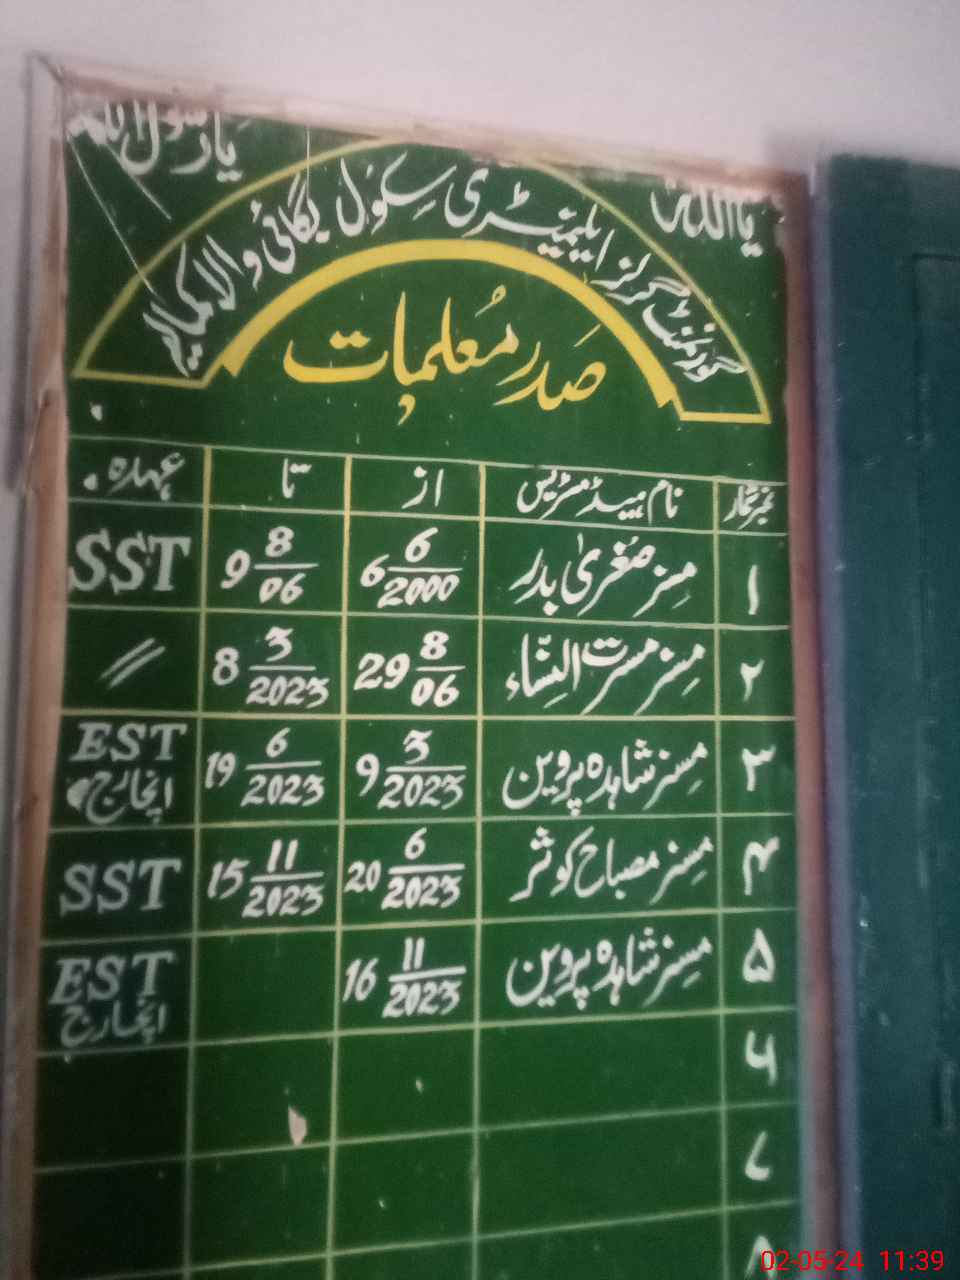 یا اللہ یا رسول اللہ
گورنمنٹ گرلز ایلیمنٹری سکول بگائی والا کمالیہ
صدر معلمات
نمبر شمار نام ہیڈ مسٹریس از تا عہدہ
۱ مسز صغریٰ بدر 6 6/2000 9 8/06 SST
۲ مسز مسرت النساء 29 8/06 8 3/2023 //
۳ مسز شاہدہ پروین 9 3/2023 19 6/2023 EST انچارج
۴ مسز مصباح کوثر 20 6/2023 15 11/2023 SST
۵ مسز شاہدہ پروین 16 11/2023 EST انچارج
۶
۷
۸
02-05-24 11:39